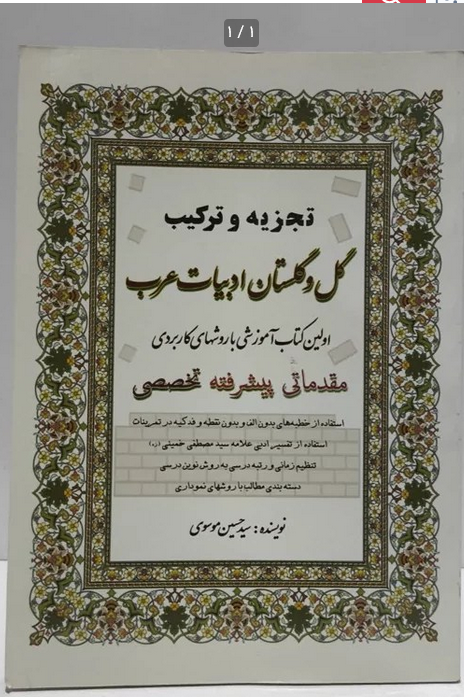 ۱ / ۱
تجزیه و ترکیب
گل و گلستان ادبیات عرب
اولین کتاب آموزشی با روشهای کاربردی
مقدماتی پیشرفته تخصصی
استفاده از خطبه‌های بدون الف و بدون نقطه و فدکیه در تمرینات
استفاده از تفسیر ادبی علامه سید مصطفی خمینی (ره)
تنظیم زمانی و رتبه درسی به روش نوین درسی
دسته بندی مطالب با روشهای نموداری
نویسنده: سید حسین موسوی